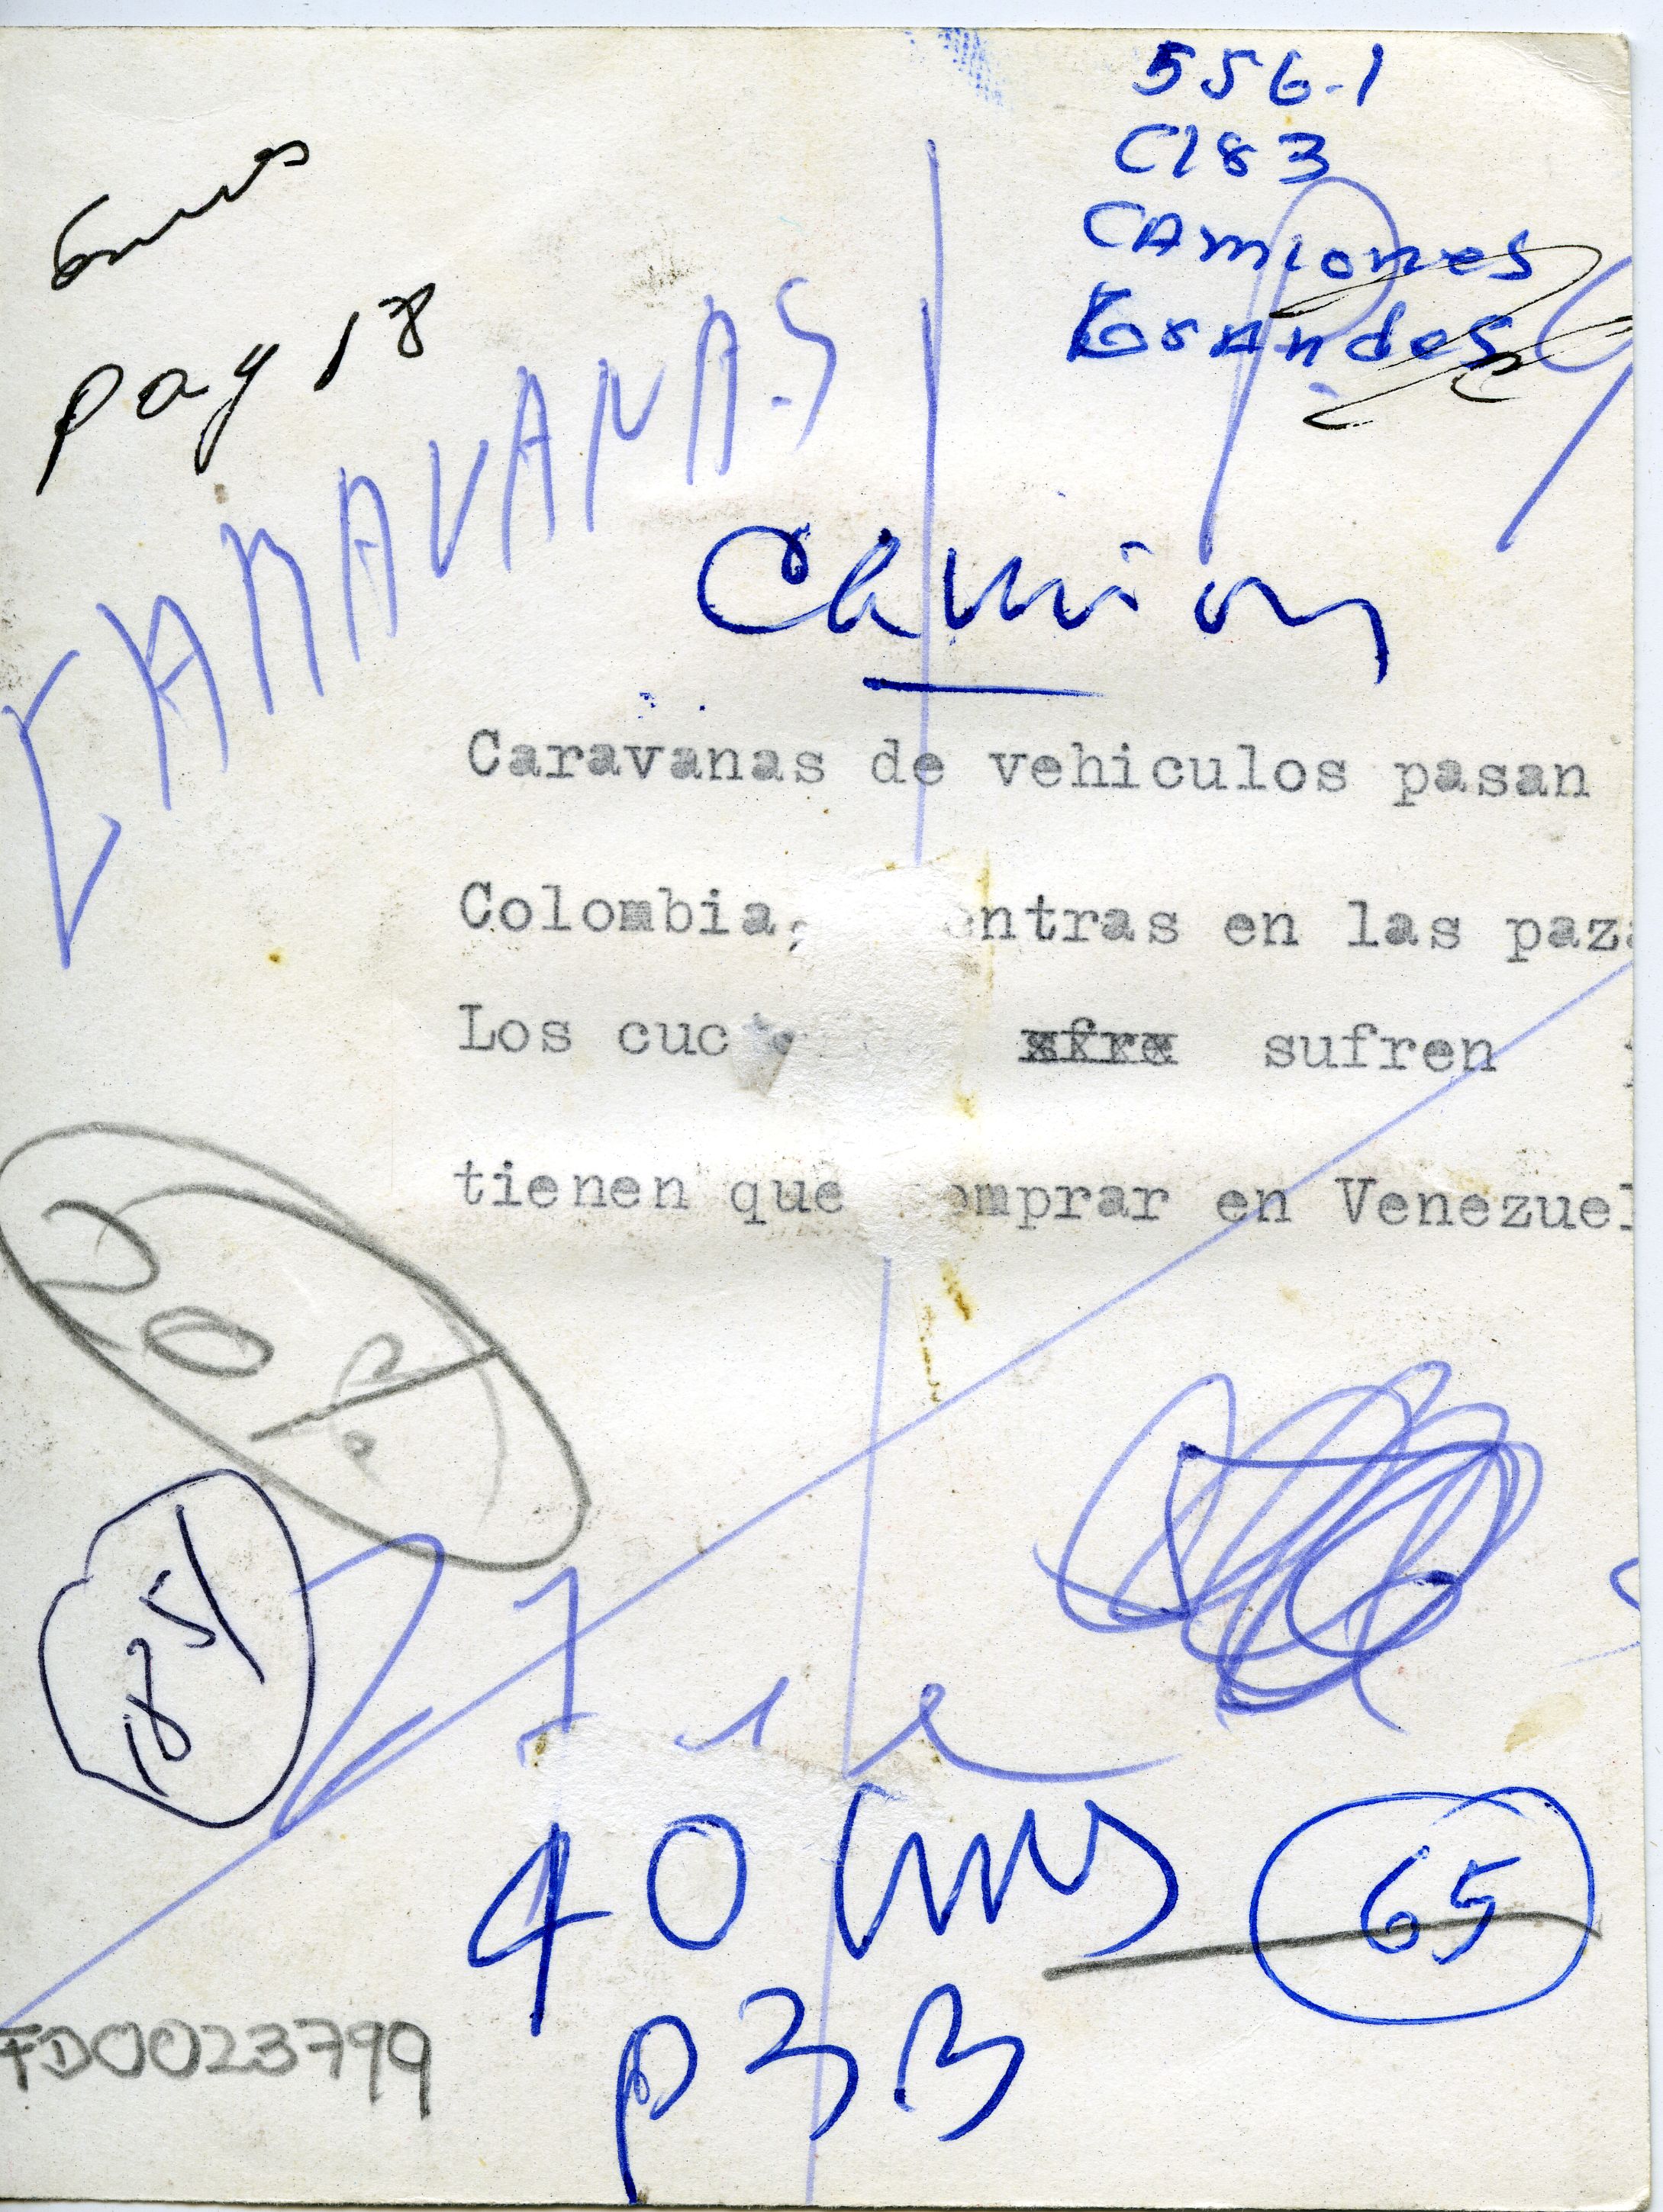 556-1
C183
CAmiones
Grandes
pag 18
CARAVANAS
Camion
Caravanas de vehiculos pasan
Colombia, entras en las paz
Los cuc sufren
tienen que omprar en Venezuel
20
1851
40 cms
65
P3B
FD0023799